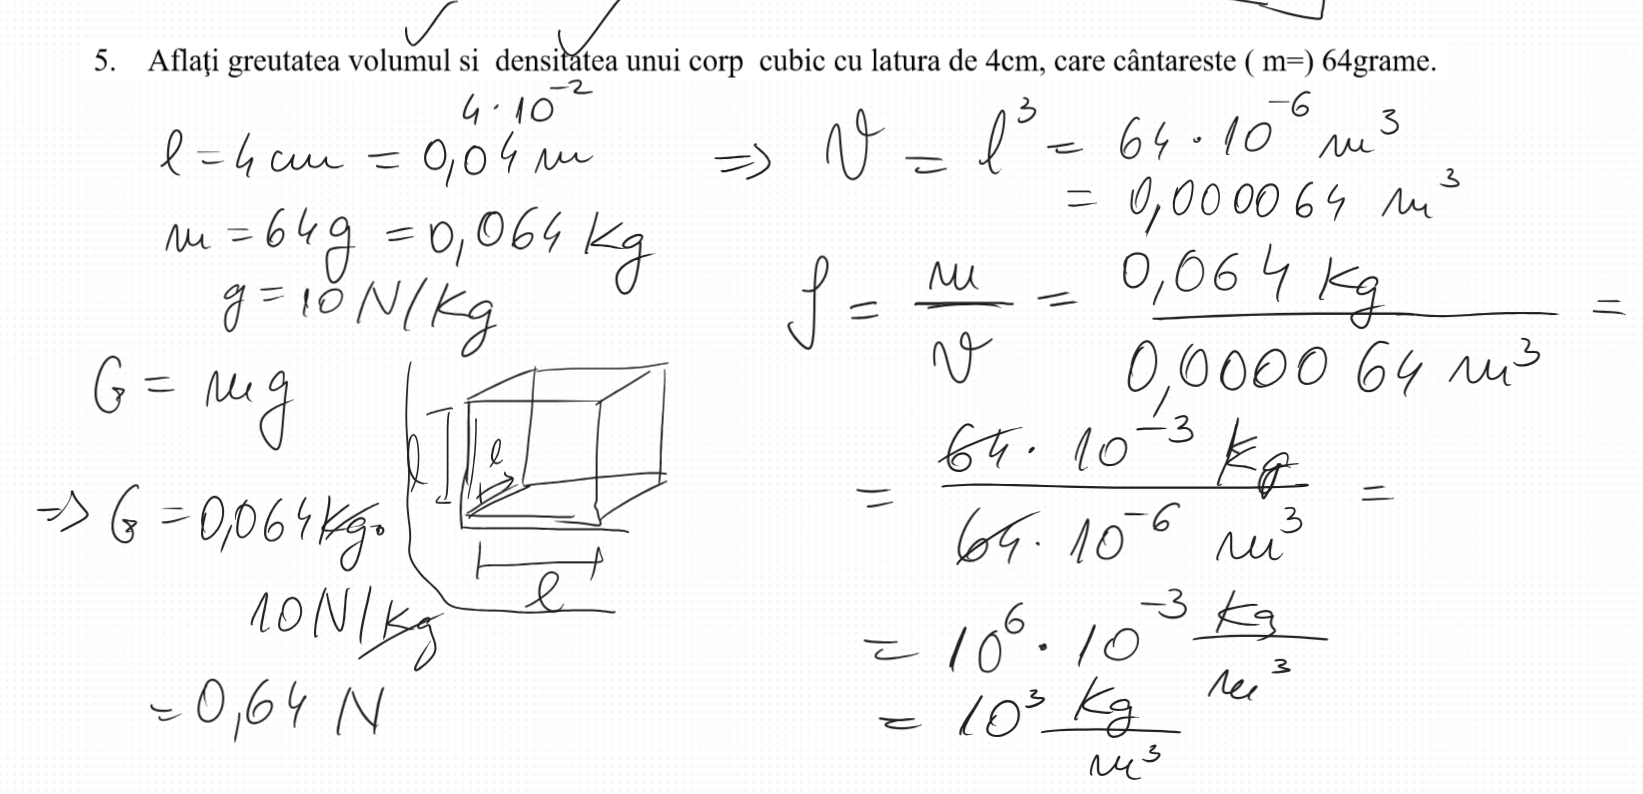 5. Aflați greutatea volumul si densitatea unui corp cubic cu latura de 4cm, care cântareste ( m=) 64grame.
4 · 10⁻²
l = 4 cm = 0,04 m
m = 64 g = 0,064 Kg
g = 10 N/Kg
G = mg
l
l
l
=> G = 0,064 Kg ·
10 N/Kg
= 0,64 N
=> V = l³ = 64 · 10⁻⁶ m³
= 0,000064 m³
ρ = m/V = 0,064 Kg / 0,0000 64 m³ =
= 64 · 10⁻³ Kg / 64 · 10⁻⁶ m³ =
= 10⁶ · 10⁻³ Kg/m³
= 10³ Kg/m³